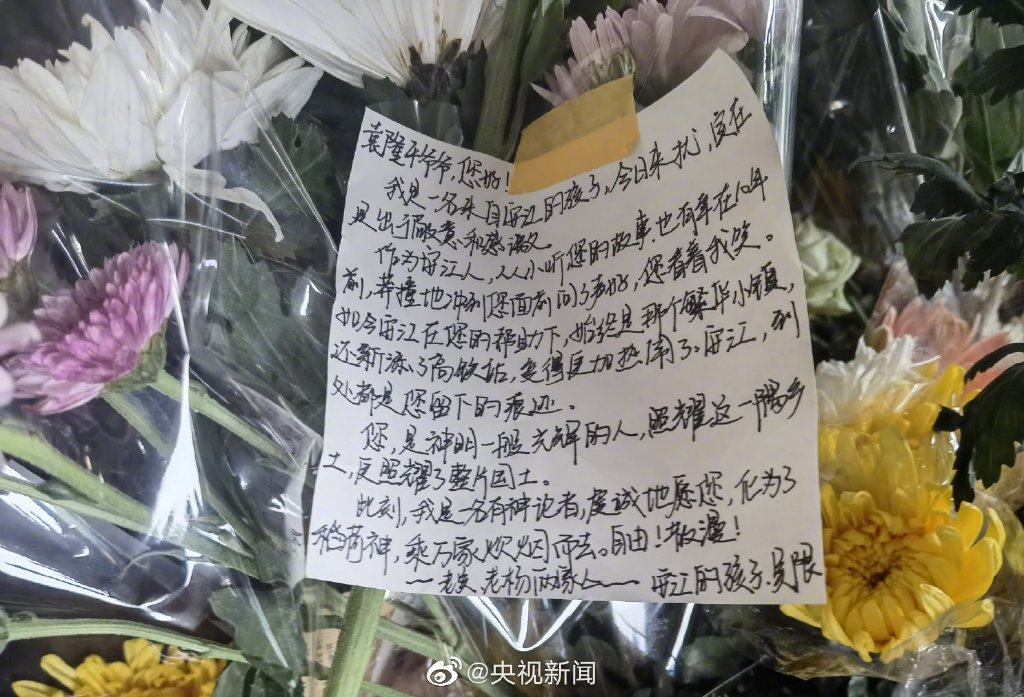 袁隆平爷爷,您好!
我是一名来自安江的孩子,今日来扰,实在
是出于敬意和感激。
作为安江人,从小听您的故事,也有幸在10年
前,莽撞地冲到您面前问了声好,您看着我笑。
如今安江在您的帮助下,始终是那个繁华小镇,
还新添了高铁站,变得更加热闹了。安江,到
处都是您留下的痕迹。
您,是神明一般光辉的人,照耀这一隅乡
土,更照耀了整片国土。
此刻,我是一名有神论者,虔诚地愿您,化为了
稻荷神,乘万家炊烟而去。自由!散漫!
——老吴、老杨两家人—— 安江的孩子、吴限
@央视新闻